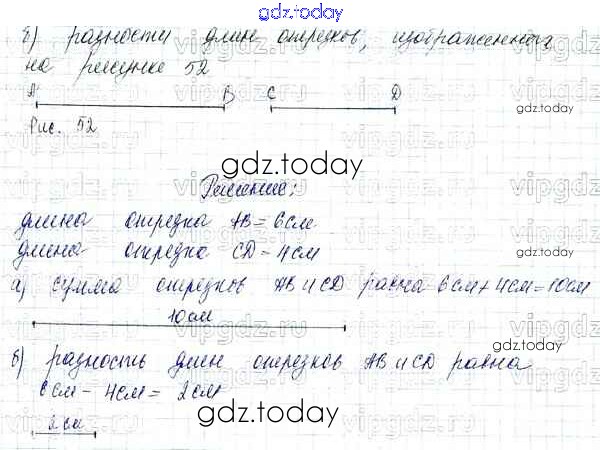 gdz.today
б) разности длин отрезков, изображенных
на рисунке 52
А В С D
Рис. 52
gdz.today
gdz.today
Решение:
длина отрезка АВ = 6см
длина отрезка CD = 4см
а) сумма отрезков АВ и CD равна 6см + 4см = 10см
10см
gdz.today
б) разность длин отрезков АВ и CD равна
6см - 4см = 2см
gdz.today
gdz.today
2см